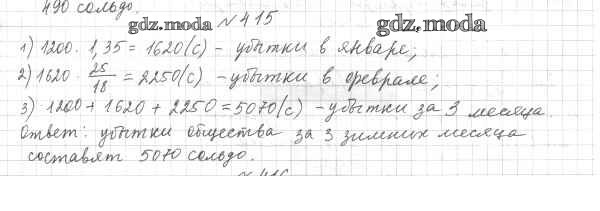 490 сольдо.
gdz.moda № 415 gdz.moda
1) 1200 · 1,35 = 1620 (с) - убытки в январе;
2) 1620 · 25/18 = 2250 (с) - убытки в феврале;
3) 1200 + 1620 + 2250 = 5070 (с) - убытки за 3 месяца.
Ответ: убытки общества за 3 зимних месяца
составят 5070 сольдо.
№ 416